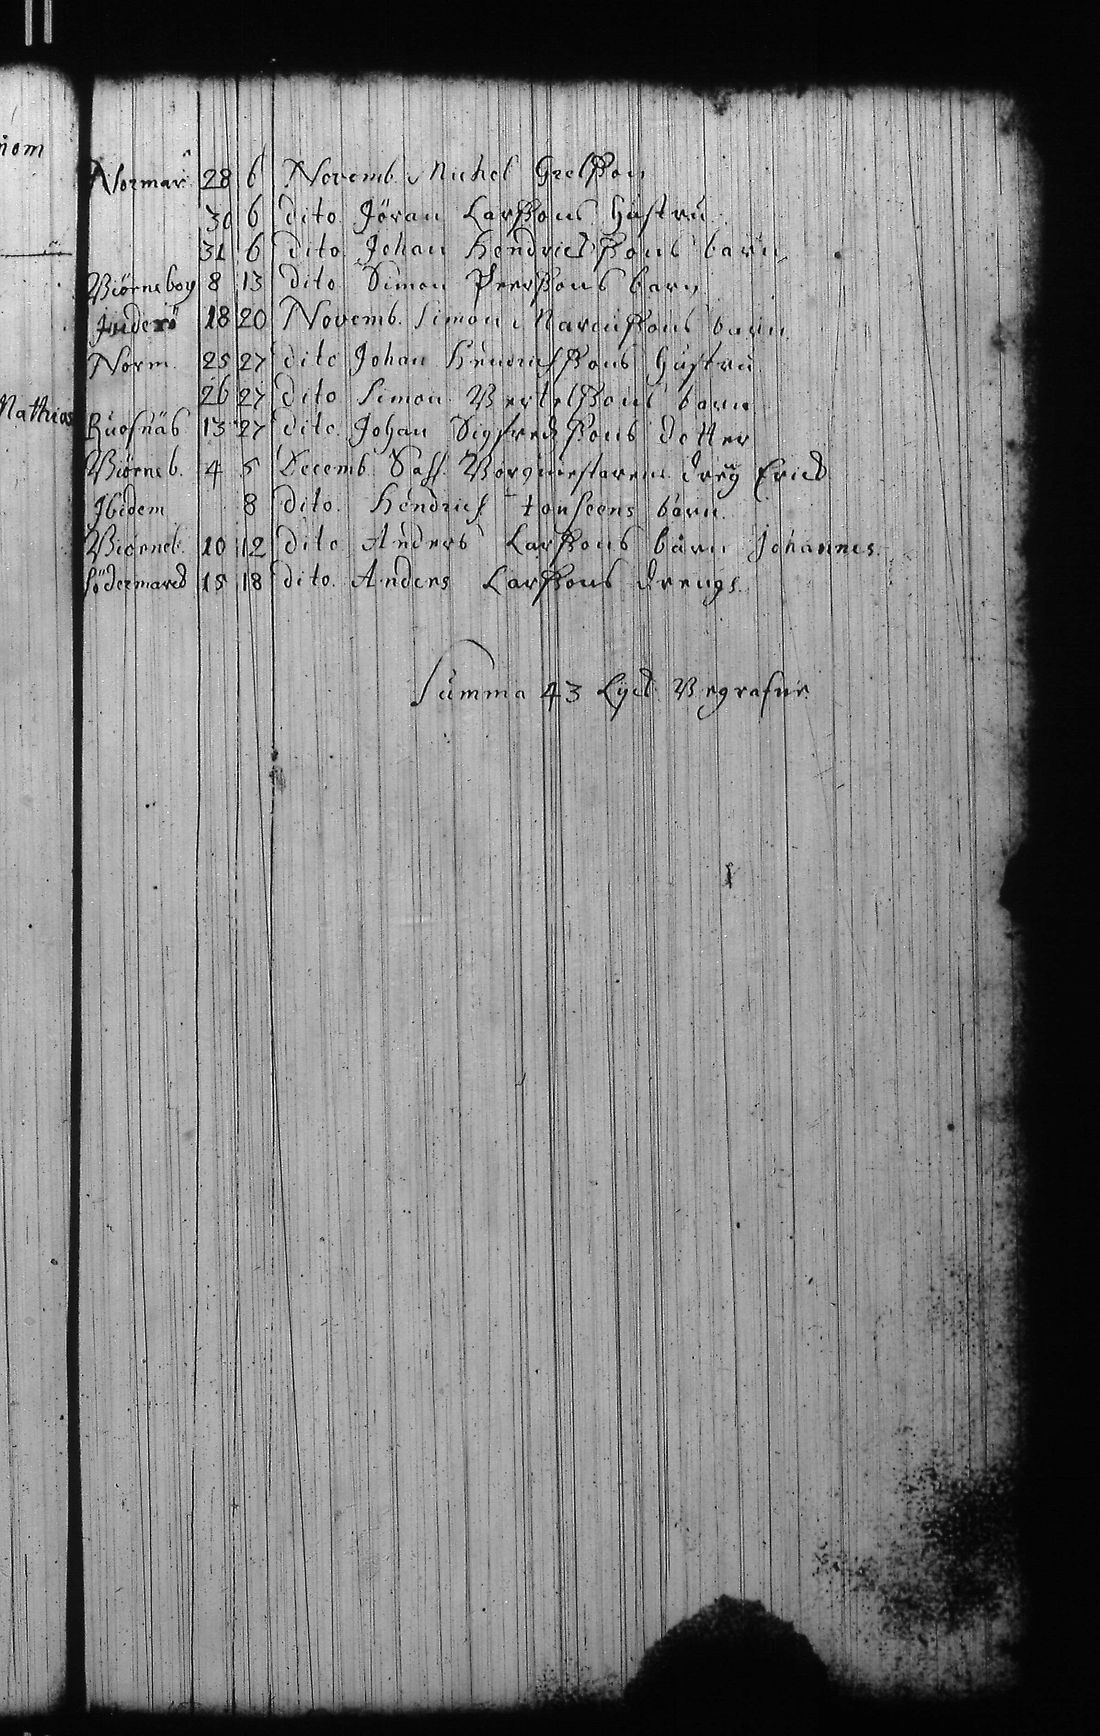 nom
Normar 28 6 Novemb. Michel Grelsson
30 6 dito Jöran Larssons hustru
31 6 dito Johan Hendrichssons barn
Biörneborg 8 13 dito Simon Peerssons barn
Inderö 18 20 Novemb. Simon Marcussons barn
Norm. 25 27 dito Johan Hendrichssons hustru
26 27 dito Simon Bertelssons barn
Mathias
Ruosnäs 13 27 dito Johan Sigfredssons dotter
Biörneb. 4 5 Decemb. Sahl. Borgmestarens dreng Erich
Ibidem 8 dito Hendrich barn
Biörneb. 10 12 dito Anders Larssons barn Johannes
Södermarck 15 18 dito Anders Larssons drengs
Summa 43 Lijck Begrafne